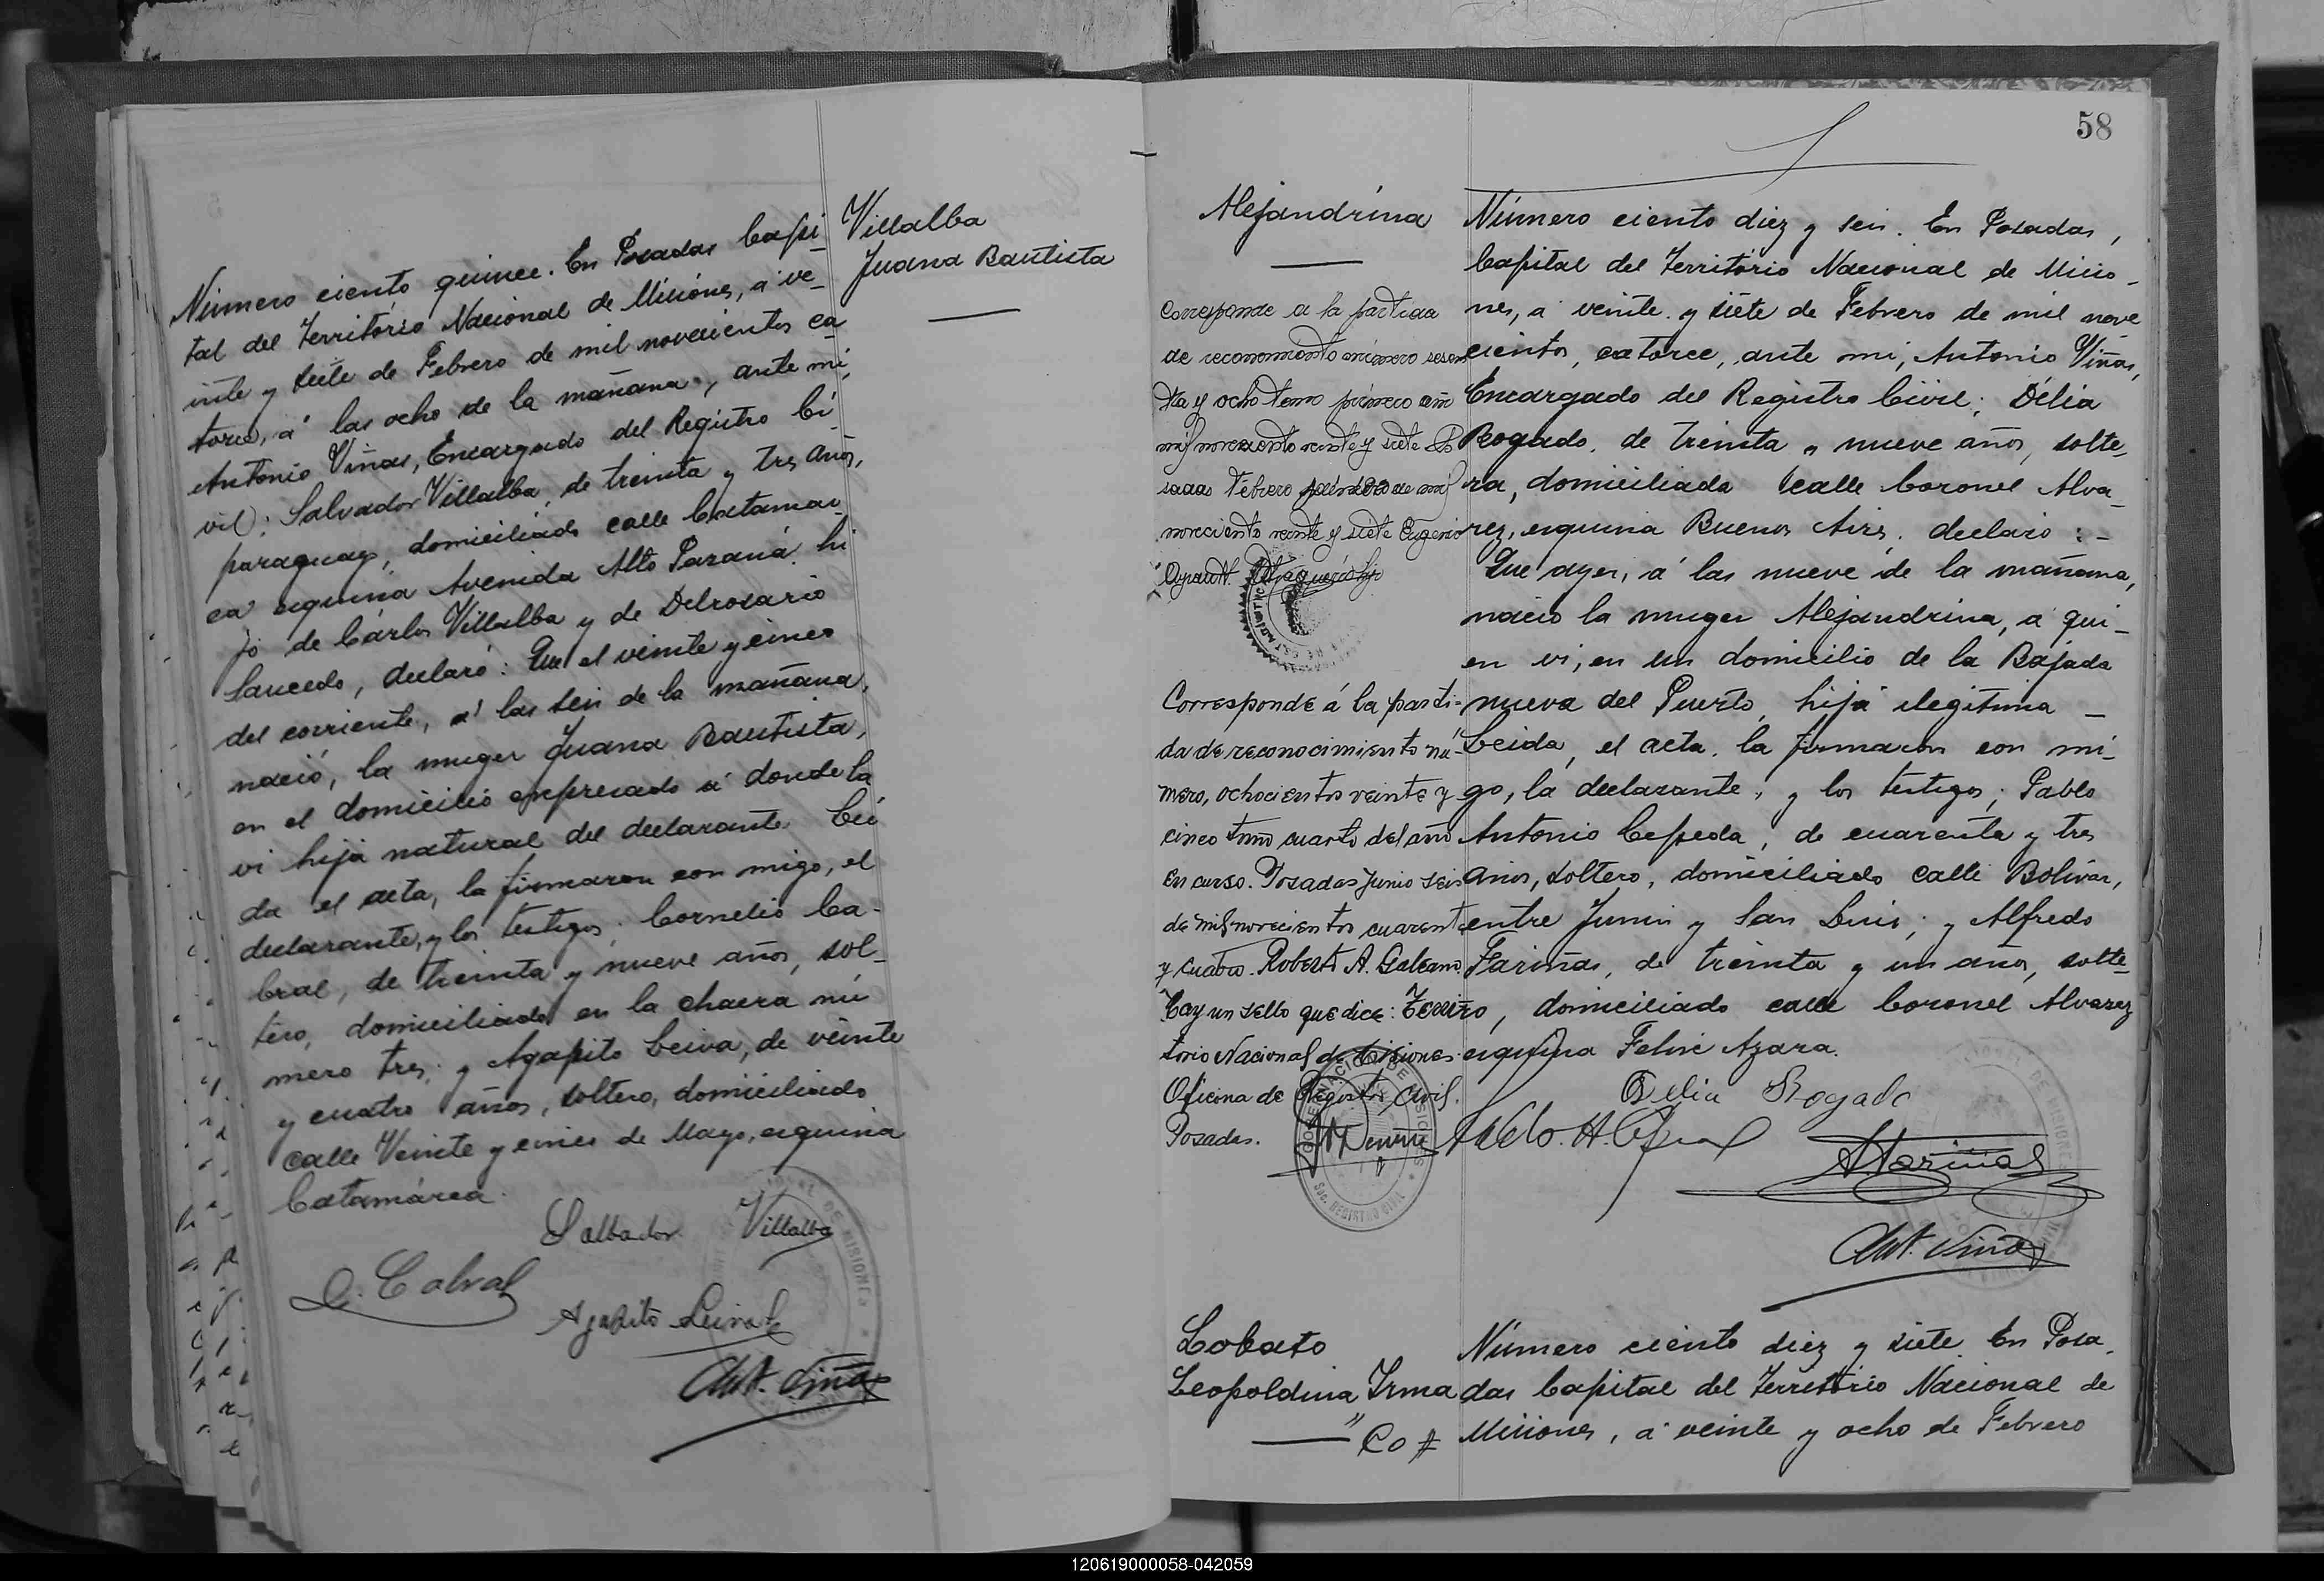 Número ciento quince. En Posadas Capi
tal del Territorio Nacional de Misiones, á ve_
inte y siete de Febrero de mil novecientos ca
torce, á las ocho de la mañana, ante mi,
Antonio Viñas, Encargado del Registro Ci_
vil; Salvador Villalba, de treinta y tres años,
paraguayo, domiciliado calle Catamar
ca esquina Avenida Alto Paraná. hi
jo de Cárlos Villalba y de Delrosario
Saucedo, declaró: Que el veinte y cinco
del corriente, á las seis de la mañana,
nació, la muger Juana Bautista,
en el domicilio expresado á donde la
vi hija natural del declarante. Leí
da el acta, la firmaron con migo, el
declarante, y los testigos; Cornelio Ca-
bral, de treinta y nueve años, sol_
tero, domiciliado en la chacra nú
mero tres; y Agapito Leiva, de veinte
y cuatro años, soltero, domiciliado
calle Veinte y cinco de Mayo, esquina
Catamárca.
Salbador Villalba
C. Cabral
Agapito Leiva
Ant. Viñas
Villalba
Juana Bautista
58
Alejandrina
Corresponde a la partida
de reconocimiento número sesen
ta y ocho tomo primero año
mil novecientos veinte y siete Po
sadas Febrero primero de mil
novecientos veinte y siete Eugenio
Corresponde á la parti-
da de reconocimiento nú-
mero, ochocientos veinte y
cinco tomo cuarto del año
en curso. Posadas Junio seis
de mil novecientos cuarenta
y cuatro. Roberto A. Galeano.
Hay un sello que dice: Terri
torio Nacional de Misiones.
Oficina de Registro Civil.
Posadas.
Número ciento diez y seis. En Posadas,
Capital del Territorio Nacional de Misio_
nes, á veinte y siete de Febrero de mil nove
cientos, catorce, ante mi, Antonio Viñas,
Encargado del Registro Civil; Délia
Bogado, de treinta y nueve años, solte_
ra, domiciliada calle Coronel Alva_
rez, esquina Buenos Aires, declaró:-
Que ayer, á las nueve de la mañana,
nació la muger Alejandrina, á qui_
en vi, en un domicilio de la Bajada
nueva del Puerto, hija ilegítima _
Leida, el acta, la firmaron con mi_
go, la declarante, y los testigos; Pablo
Antonio Cepeda, de cuarenta y tres
años, soltero, domiciliado calle Bolivar,
entre Junin y San Luis; y Alfredo
Fariñas, de treinta y un años, solte_
ro, domiciliado calle Coronel Alvarez
esquina Felix Azara.
Delia Bogado
A Fariñas
Ant. Viñas
Lobato
Leopoldina Irma
Número ciento diez y siete. En Posa_
das Capital del Territorio Nacional de
Misiones, á veinte y ocho de Febrero
120619000058-042059